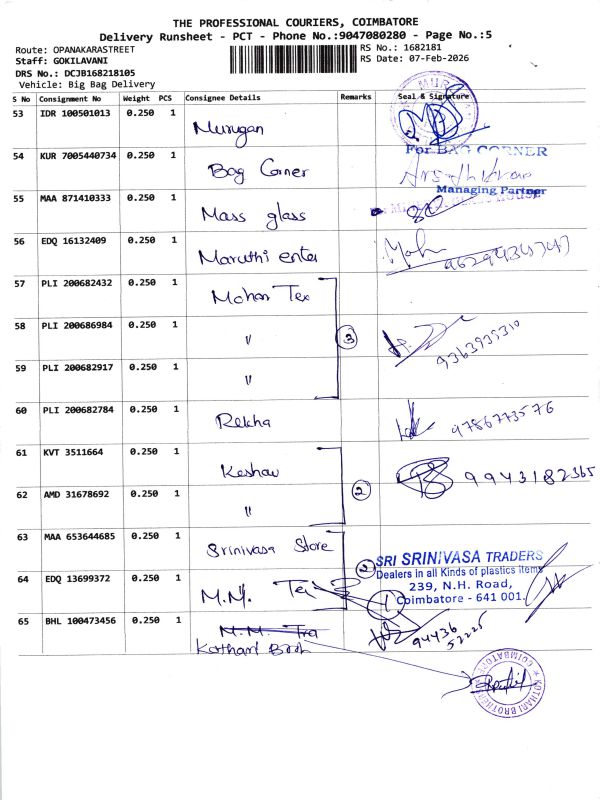 THE PROFESSIONAL COURIERS, COIMBATORE
Delivery Runsheet - PCT - Phone No.:9047080280 - Page No.:5
Route: OPANAKARASTREET
RS No.: 1682181
Staff: GOKILAVANI
RS Date: 07-Feb-2026
DRS No.: DCJB168218105
Vehicle: Big Bag Delivery
S No Consignment No Weight PCS Consignee Details Remarks Seal & Signature
53 IDR 100501013 0.250 1 Murugan
For BAG CORNER
54 KUR 7005440734 0.250 1 Bag Corner
Managing Partner
55 MAA 871410333 0.250 1 Mass glass
56 EDQ 16132409 0.250 1 Maruthi enter
57 PLI 200682432 0.250 1 Mohan Tex
58 PLI 200686984 0.250 1 " 3 9363935310
59 PLI 200682917 0.250 1 "
60 PLI 200682784 0.250 1 Rekha 9786773576
61 KVT 3511664 0.250 1 Keshav 9943182365
62 AMD 31678692 0.250 1 " 2
63 MAA 653644685 0.250 1 Srinivasa Store
SRI SRINIVASA TRADERS
Dealers in all Kinds of plastics items
239, N.H. Road,
Coimbatore - 641 001.
64 EDQ 13699372 0.250 1 M.M. Tex 1
65 BHL 100473456 0.250 1 M.M. Tra 94436
52225
Kothari Broth
KOTHARI BROTHERS
COIMBATORE